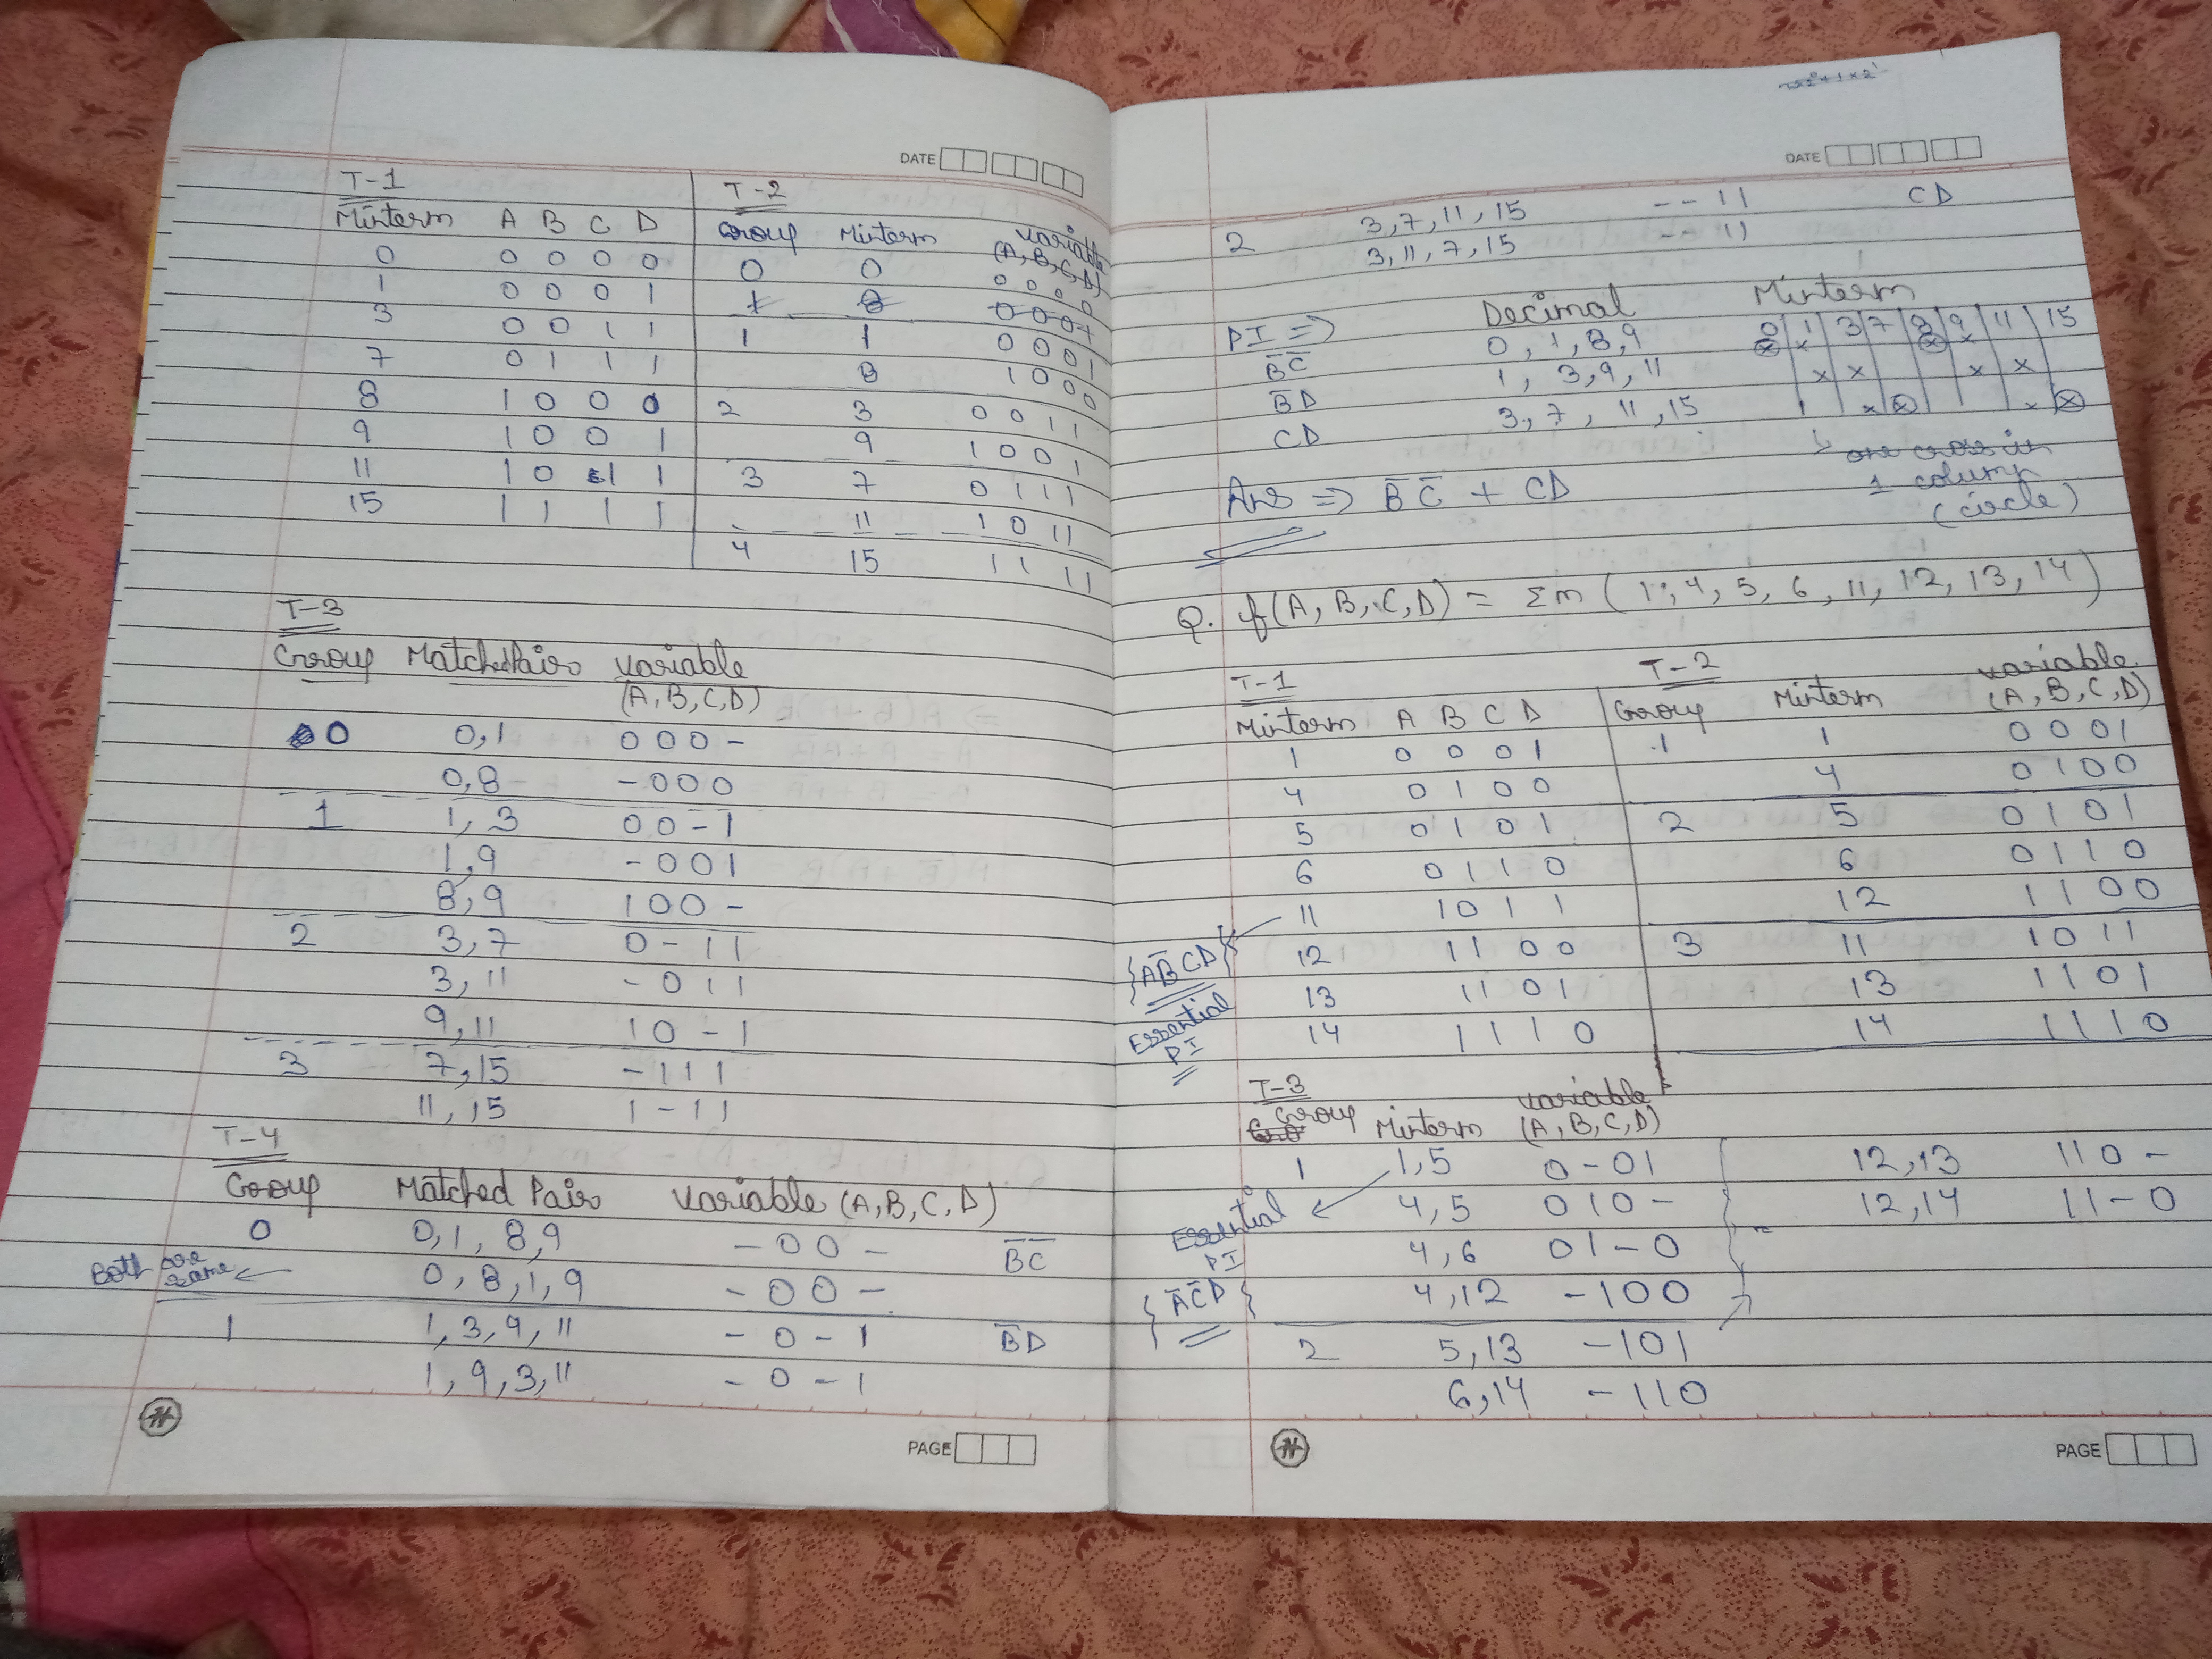 DATE
T-1
Minterm A B C D
0 0 0 0 0
1 0 0 0 1
3 0 0 1 1
7 0 1 1 1
8 1 0 0 0
9 1 0 0 1
11 1 0 1 1
15 1 1 1 1
T-2
Group Minterm variable
(A, B, C, D)
0 0 0 0 0 0
1 8 0001
1 1 0 0 0 1
8 1 0 0 0
2 3 0 0 1 1
9 1 0 0 1
3 7 0 1 1 1
11 1 0 1 1
4 15 1 1 1 1
T-3
Group Matched Pair variable
(A, B, C, D)
0 0,1 0 0 0 -
0,8 - 0 0 0
1 1, 3 0 0 - 1
1,9 - 0 0 1
8,9 1 0 0 -
2 3,7 0 - 1 1
3, 11 - 0 1 1
9,11 1 0 - 1
3 7,15 - 1 1 1
11, 15 1 - 1 1
T-4
Group Matched Pair variable (A, B, C, D)
0 0,1, 8,9 - 0 0 - B̅C̅
Both are same ← 0, 8, 1, 9 - 0 0 -
1 1, 3, 9, 11 - 0 - 1 B̅D
1, 9, 3, 11 - 0 - 1
N
PAGE
DATE
2 3,7, 11, 15 - - 11 CD
3, 11, 7, 15 - - 11
PI ⇒ Decimal Minterm
0 1 3 7 8 9 11 15
B̅C̅ 0, 1, 8, 9 ⊗ x ⊗ x
B̅D 1, 3, 9, 11 x x x x
CD 3, 7, 11, 15 x ⊗ x ⊗
one cross in
1 column
(circle)
Ans ⇒ B̅ C̅ + CD
Q. f(A, B, C, D) = Σm ( 1, 4, 5, 6, 11, 12, 13, 14)
T-1
Minterm A B C D
1 0 0 0 1
4 0 1 0 0
5 0 1 0 1
6 0 1 1 0
11 1 0 1 1
12 1 1 0 0
13 1 1 0 1
14 1 1 1 0
{AB̅CD}
Essential
PI
T-2
Group Minterm variable
(A, B, C, D)
1 1 0 0 0 1
4 0 1 0 0
2 5 0 1 0 1
6 0 1 1 0
12 1 1 0 0
3 11 1 0 1 1
13 1 1 0 1
14 1 1 1 0
T-3
Group Minterm variable
(A, B, C, D)
1 1,5 0 - 0 1
4, 5 0 1 0 -
4, 6 0 1 - 0
4,12 - 1 0 0
2 5,13 - 1 0 1
6,14 - 1 1 0
Essential
PI
{A̅C̅D}
12,13 1 1 0 -
12,14 1 1 - 0
N
PAGE